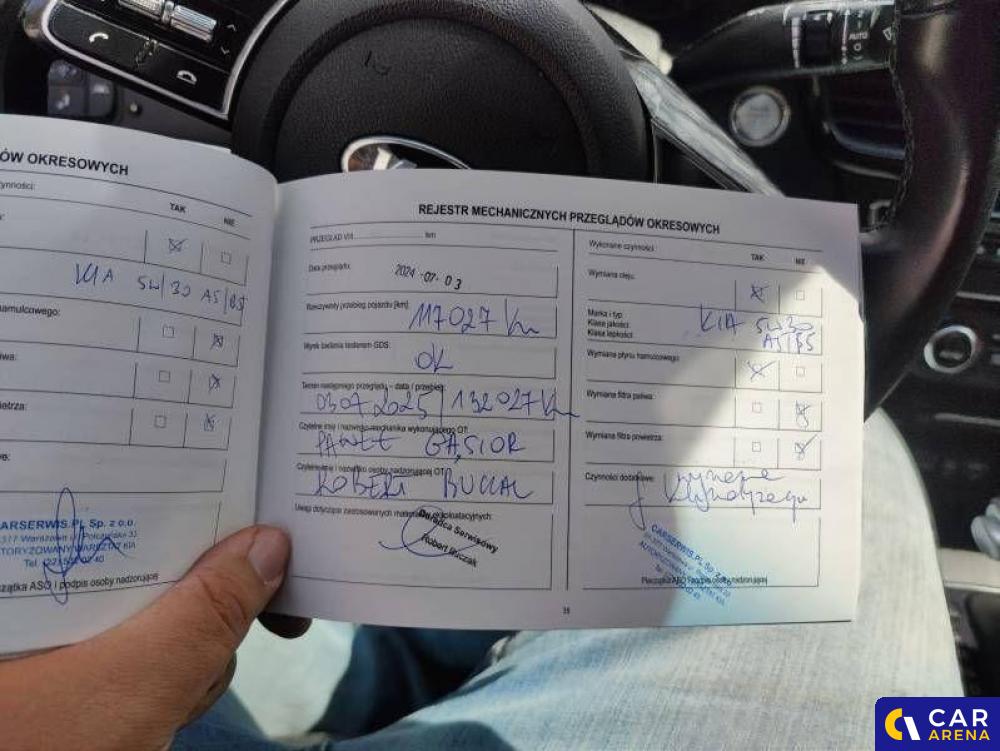 AUTO
ÓW OKRESOWYCH
TAK
NIE
KIA 5W/30 A5/B5
hamulcowego:
CARSERWIS.PL Sp. z o.o.
AUTORYZOWANY WARSZTAT KIA
Pieczątka ASO i podpis osoby nadzorującej
REJESTR MECHANICZNYCH PRZEGLĄDÓW OKRESOWYCH
PRZEGLĄD VIII km
Data przeglądu:
2024 -07- 03
Rzeczywisty przebieg pojazdu [km]:
117027 km
Wynik badania testerem GDS:
OK
Termin następnego przeglądu – data / przebieg:
03.07.2025 / 132027 km
Czytelne imię i nazwisko mechanika wykonującego OT:
PAWEŁ GĄSIOR
Czytelne imię i nazwisko osoby nadzorującej OT:
ROBERT
Uwagi dotyczące zastosowanych materiałów eksploatacyjnych:
Doradca Serwisowy
Robert
Wykonane czynności:
TAK
NIE
Wymiana oleju:
Marka i typ:
Klasa jakości:
Klasa lepkości:
KIA 5W30
A5/B5
Wymiana płynu hamulcowego:
Wymiana filtra paliwa:
Wymiana filtra powietrza:
Czynności dodatkowe:
CARSERWIS.PL Sp. z o.o.
AUTORYZOWANY WARSZTAT KIA
Pieczątka ASO i podpis osoby nadzorującej
CAR
ARENA